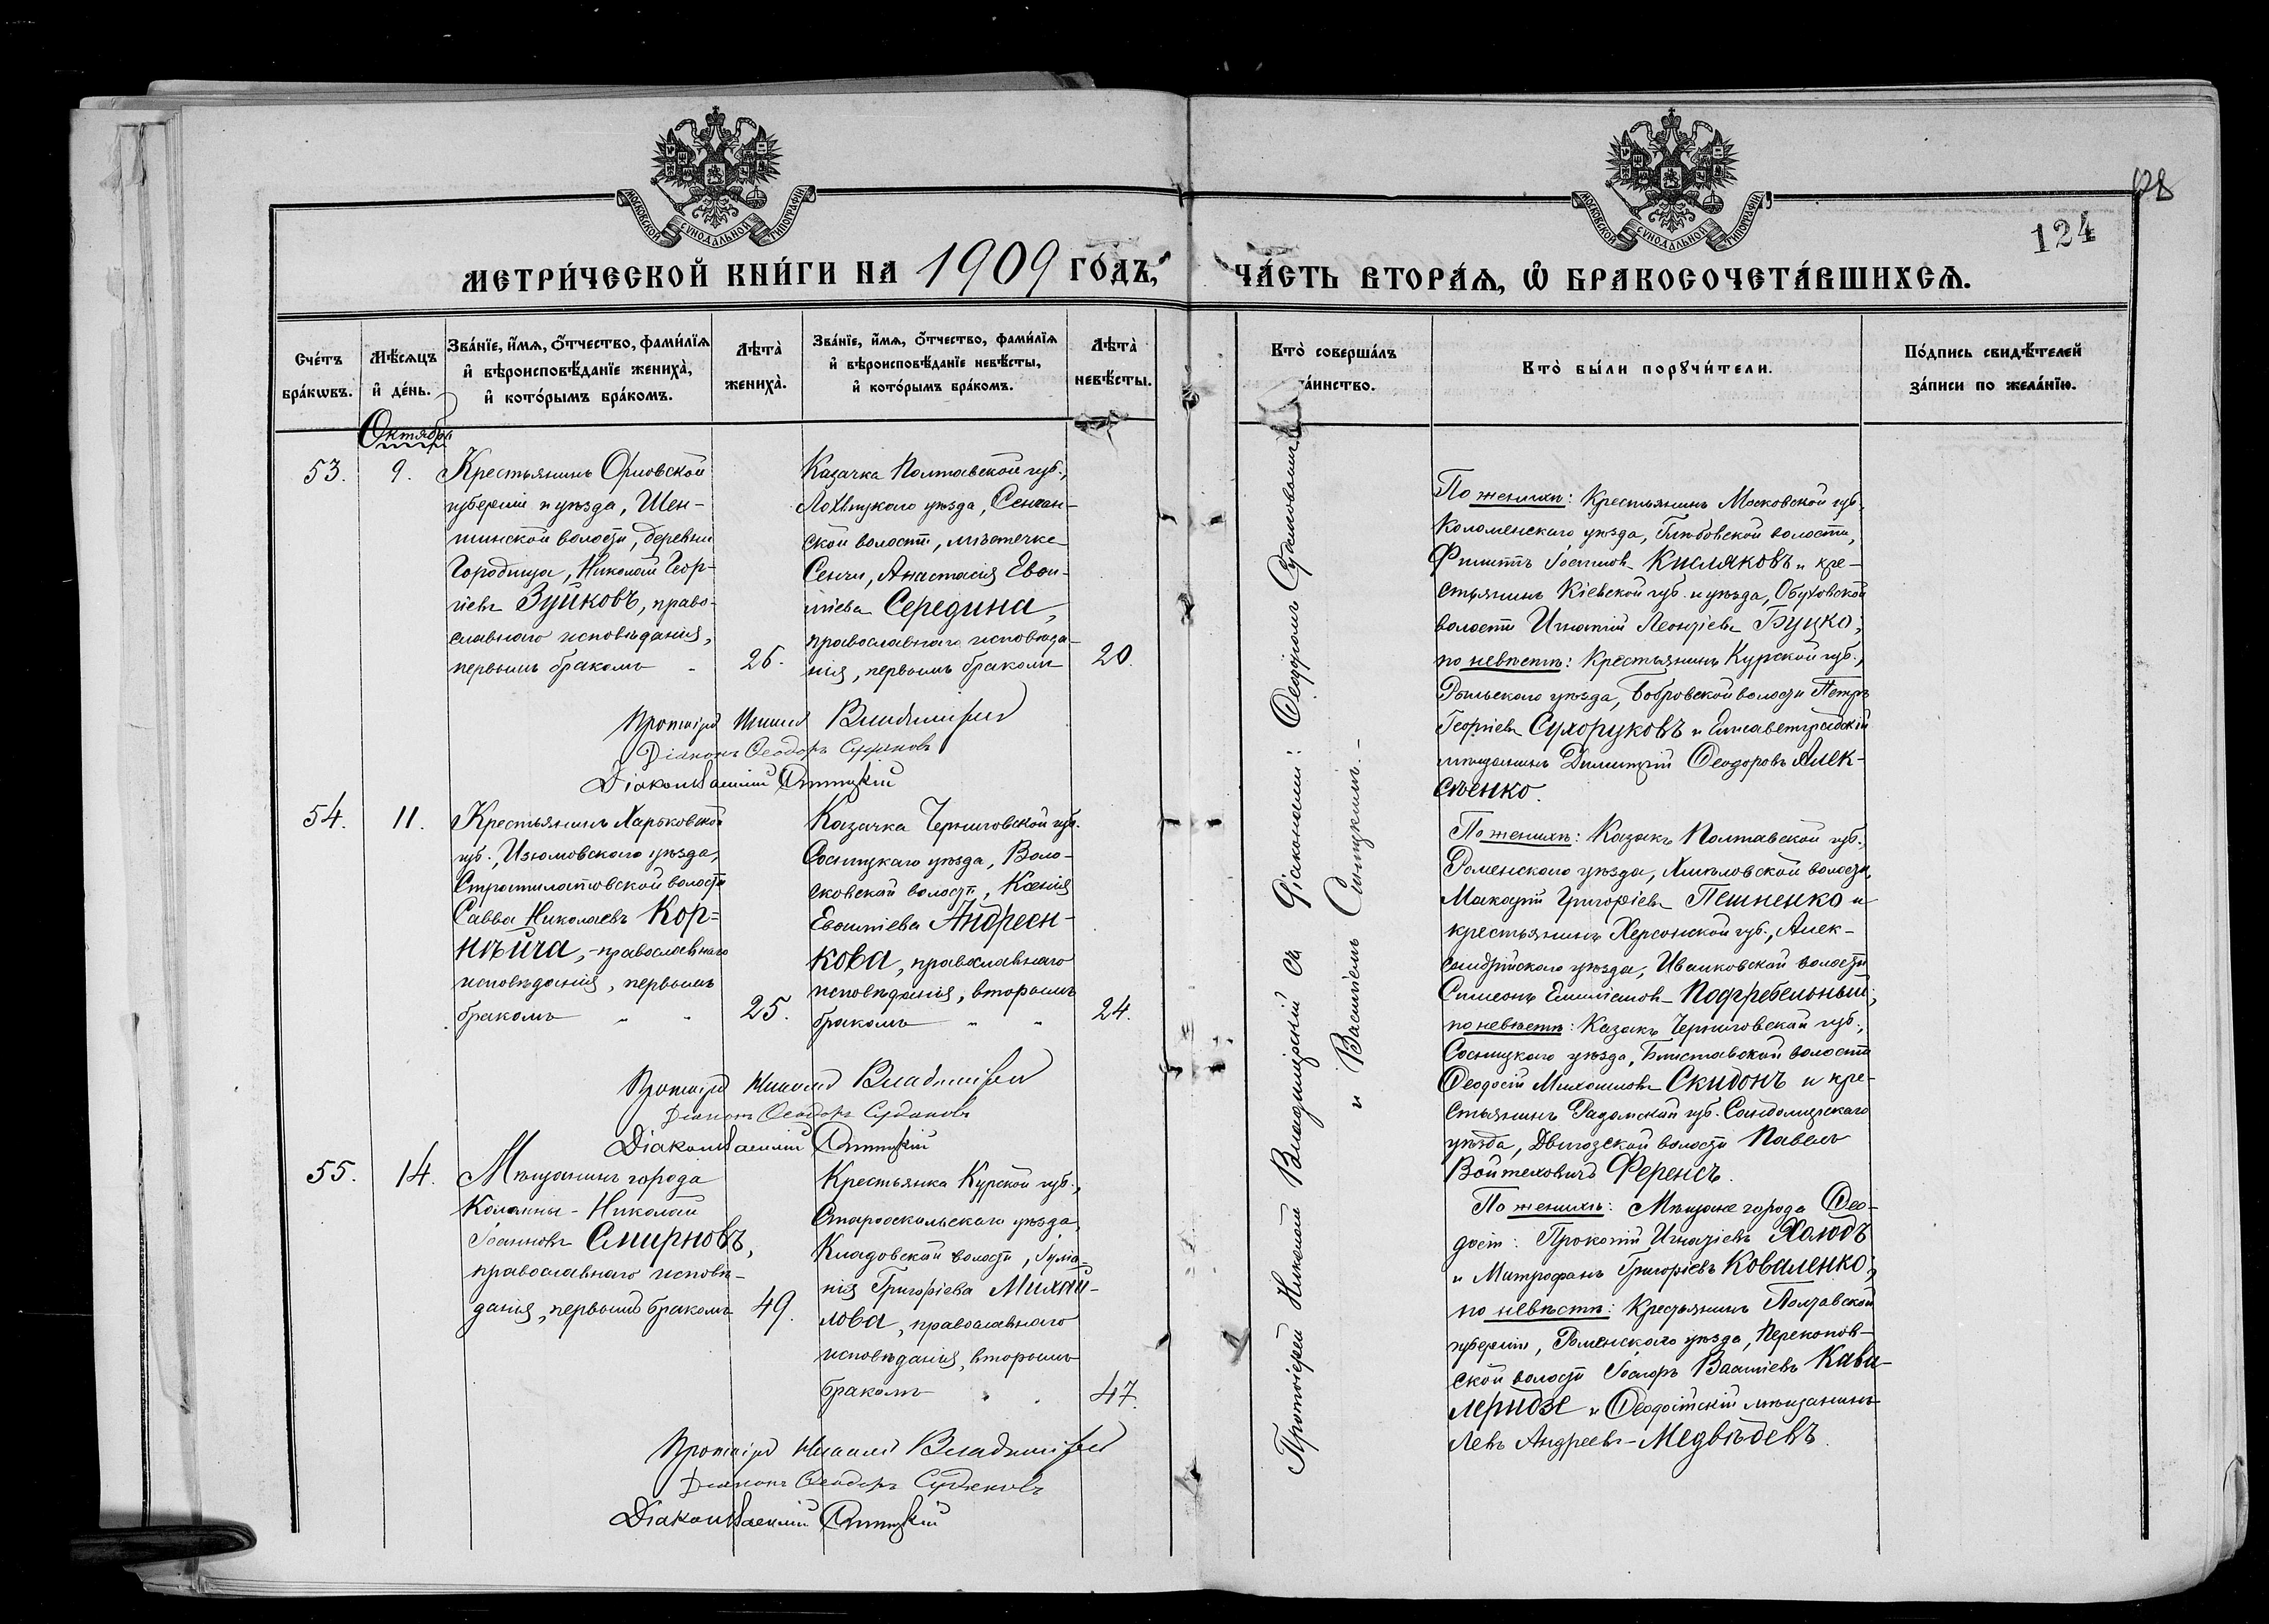 МОСКОВСКОЙ СѴНОДАЛЬНОЙ ТИПОГРАФІИ
МОСКОВСКОЙ СѴНОДАЛЬНОЙ ТИПОГРАФІИ
128
124
МЕТРИ́ЧЕСКОЙ КНИ́ГИ НА 1909 ГО́ДЪ,
ЧА́СТЬ ВТОРА́Ѧ, Ѡ҆ БРАКОСОЧЕТА́ВШИХСѦ.
Сче́тъ бра́кѡвъ.
Мѣ́сѧцъ и҆ де́нь.
Зва́нїе, и҆́мѧ, ѻ҆́тчество, фами́лїѧ
и҆ вѣроисповѣ́данїе жениха̀,
и҆ кото́рымъ бра́комъ.
Лѣта̀ жениха̀.
Зва́нїе, и҆́мѧ, ѻ҆́тчество, фами́лїѧ
и҆ вѣроисповѣ́данїе невѣ́сты,
и҆ кото́рымъ бра́комъ.
Лѣта̀ невѣ́сты.
Кто̀ соверша́лъ
та́инство.
Кто̀ бы́ли порꙋчи́тели.
По́дпись свидѣ́телей
за́писи по жела́нїю.
Октября
53.
9.
Крестьянинъ Орловской
губерніи и уѣзда,
волости, деревни
Городища, Николай Геор-
гіевъ Зуйковъ, право-
славнаго исповѣданія,
первымъ бракомъ
26.
Казачка Полтавской губ.,
Лохвицкаго уѣзда, Сенчан-
ской волости, мѣстечка
Сенчи, Анастасія Евѳи-
міева Середина,
православнаго исповѣда-
нія, первымъ бракомъ
20.
По женихѣ: Крестьянинъ Московской губ.
Коломенскаго уѣзда, волости,
Филиппъ Іоанновъ Кисляковъ и кре-
стьянинъ Кіевской губ. и уѣзда, Обуховской
волости Игнатій Леонтіевъ Буцко;
по невѣстѣ: Крестьянинъ Курской губ.,
Рыльскаго уѣзда, Бобровской волости Петръ
Георгіевъ Сухоруковъ и Елисаветградскій
мѣщанинъ Димитрій Ѳеодоровъ Алек-
сѣенко.
Протоіерей Николай Владимірскій
Діаконъ Ѳеодоръ
Діаконъ Василій
54.
11.
Крестьянинъ Харьковской
губ., Изюмовскаго уѣзда,
Стратилатовской волости
Савва Николаевъ Кор-
нѣйча, православнаго
исповѣданія, первымъ
бракомъ " "
25.
Казачка Черниговской губ.
Сосницкаго уѣзда, Воло-
сковской волости, Ксенія
Евѳиміева Андреен-
кова, православнаго
исповѣданія, вторымъ
бракомъ " "
24.
По женихѣ: Казакъ Полтавской губ.,
Роменскаго уѣзда, Хмѣловской волости,
Макарій Григоріевъ Пешненко и
крестьянинъ Херсонской губ., Алек-
сандрійскаго уѣзда, Ивановской волости
Симеонъ Подгребельный;
по невѣстѣ: Казакъ Черниговской губ.,
Сосницкаго уѣзда, Блиставской волости
Ѳеодосій Михайловъ Скидонъ и кре-
стьянинъ Радомской губ. Сандомирскаго
уѣзда, Двикозской волости Павелъ
Войтеховичъ Ференсъ.
Протоіерей Николай Владимірскій
Діаконъ Ѳеодоръ
Діаконъ Василій
55.
14.
Мѣщанинъ города
Коломны - Николай
Іоанновъ Смирновъ,
православнаго исповѣ-
данія, первымъ бракомъ
49.
Крестьянка Курской губ.,
Старооскольскаго уѣзда,
Кладовской волости, Іулiа-
нія Григоріева Михай-
лова, православнаго
исповѣданія, вторымъ
бракомъ " "
47.
По женихѣ: Мѣщане города Ѳео-
досіи: Прокопій Игнатіевъ Холодъ
и Митрофанъ Григоріевъ Коваленко;
по невѣстѣ: Крестьянинъ Полтавской
губерніи, Роменскаго уѣзда, Перекопов-
ской волости Василіевъ Кава-
леридзе и Ѳеодосійскій мѣщанинъ
Левъ Андреевъ - Медвѣдевъ.
Протоіерей Николай Владимірскій
Діаконъ Ѳеодоръ
Діаконъ Василій
Протоіерей Николай Владимірскій съ Діаконами: Ѳеодоромъ
и Василіемъ